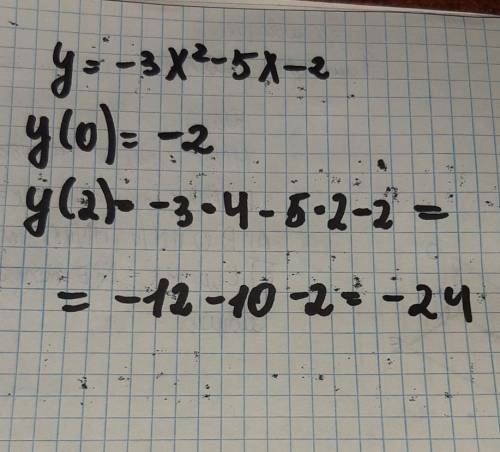 y = -3x² - 5x - 2
y(0) = -2
y(2) = -3·4 - 5·2 - 2 =
= -12 - 10 - 2 = -24